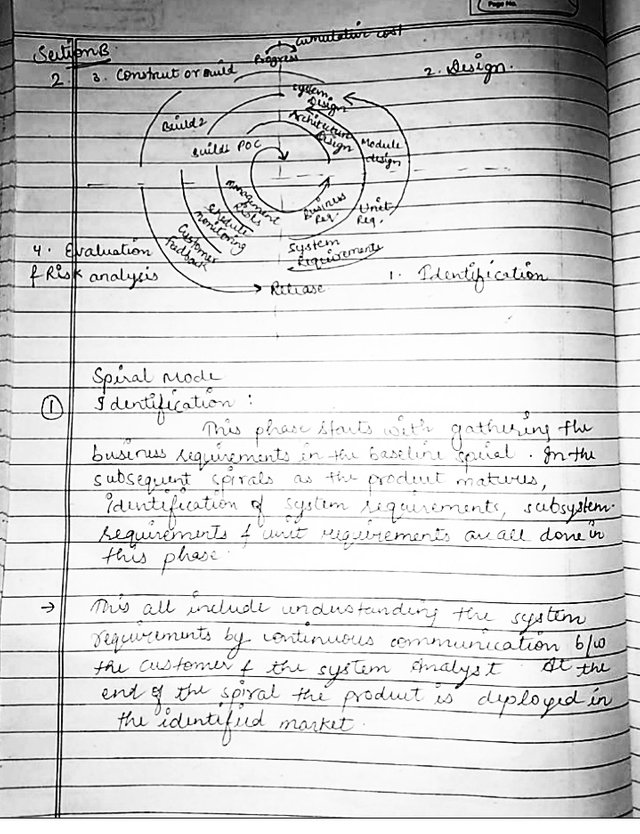 Page No.
Cumulative cost
Section B
Progress
2 3. Construct or build
2. Design.
System Design
Architecture Design
Build 2
Module design
Build 1 POC
Management of Risks
Business Req.
Unit Req.
Schedule monitoring
Customer Feedback
System Requirements
4. Evaluation
& Risk analysis
1. Identification
Release
Spiral Mode
① Identification :
This phase starts with gathering the
business requirements in the baseline spiral. In the
subsequent spirals as the product matures,
identification of system requirements, subsystem
requirements & unit requirements are all done in
this phase.
→ This all include understanding the system
requirements by continuous communication b/w
the customer & the system Analyst. At the
end of the spiral the product is deployed in
the identified market.